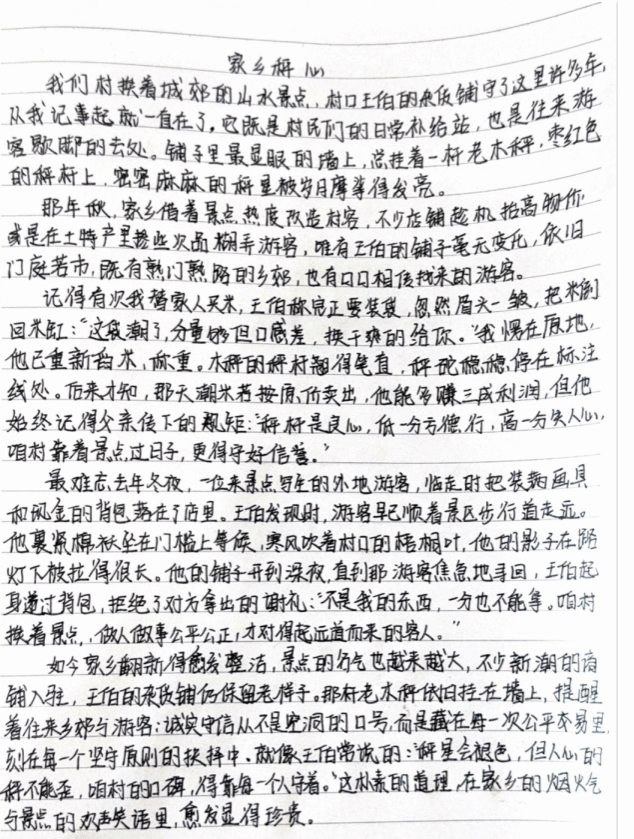 家乡秤心
我们村挨着城郊的山水景点，村口王伯的杂货铺守了这里许多年，
从我记事起就一直在了。它既是村民们的日常补给站，也是往来游
客歇脚的去处。铺子里最显眼的墙上，总挂着一杆老木秤，枣红色
的秤杆上，密密麻麻的秤星被岁月摩挲得发亮。
那年秋，家乡借着景点热度改造村容，不少店铺趁机抬高物价
或是在土特产里掺些次品糊弄游客，唯有王伯的铺子毫无变化，依旧
门庭若市，既有熟门熟路的乡邻，也有口口相传找来的游客。
记得有次我替家人买米，王伯称完正要装袋，忽然眉头一皱，把米倒
回米缸：“这袋潮了，分量够但口感差，换干爽的给你。”我愣在原地，
他已重新舀米、称重。木秤的秤杆翘得笔直，秤砣稳稳停在标注
线处。后来才知，那天潮米若按原价卖出，他能多赚三成利润，但他
始终记得父亲传下的规矩：“秤杆是良心，低一分亏德行，高一分失人心，
咱村靠着景点过日子，更得守好信誉。”
最难忘去年冬夜，一位来景点写生的外地游客，临走时把装着画具
和现金的背包落在了店里。王伯发现时，游客早已顺着景区步行道走远。
他裹紧棉袄坐在门槛上等候，寒风吹着村口的梧桐叶，他的影子在路
灯下被拉得很长。他的铺子开到深夜，直到那游客焦急地寻回，王伯起
身递过背包，拒绝了对方拿出的谢礼：“不是我的东西，一分也不能拿。咱村
挨着景点，做人做事公平公正，才对得起远道而来的客人。”
如今家乡翻新得愈发整洁，景点的名气也越来越大，不少新潮的商
铺入驻，王伯的杂货铺仍保留老样子。那杆老木秤依旧挂在墙上，提醒
着往来乡邻与游客：诚实守信从不是空洞的口号，而是藏在每一次公平交易里，
刻在每一个坚守原则的抉择中。就像王伯常说的：“秤星会褪色，但人心的
秤不能歪，咱村的口碑，得靠每一个人守着。”这朴素的道理，在家乡的烟火气
与景点的欢声笑语里，愈发显得珍贵。